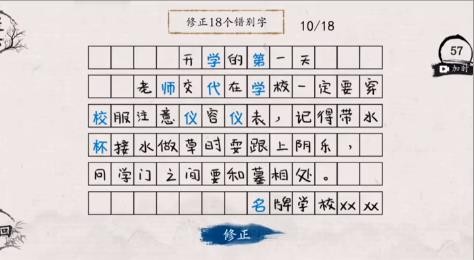 修正18个错别字 10/18
57
加时
开学的第一天
老师交代在学校一定要穿
校服注意仪容仪表，记得带水
杯接水做草时耍跟上阴乐，
问学门之间要和墓相处。
名牌学校xx xx
修正
回